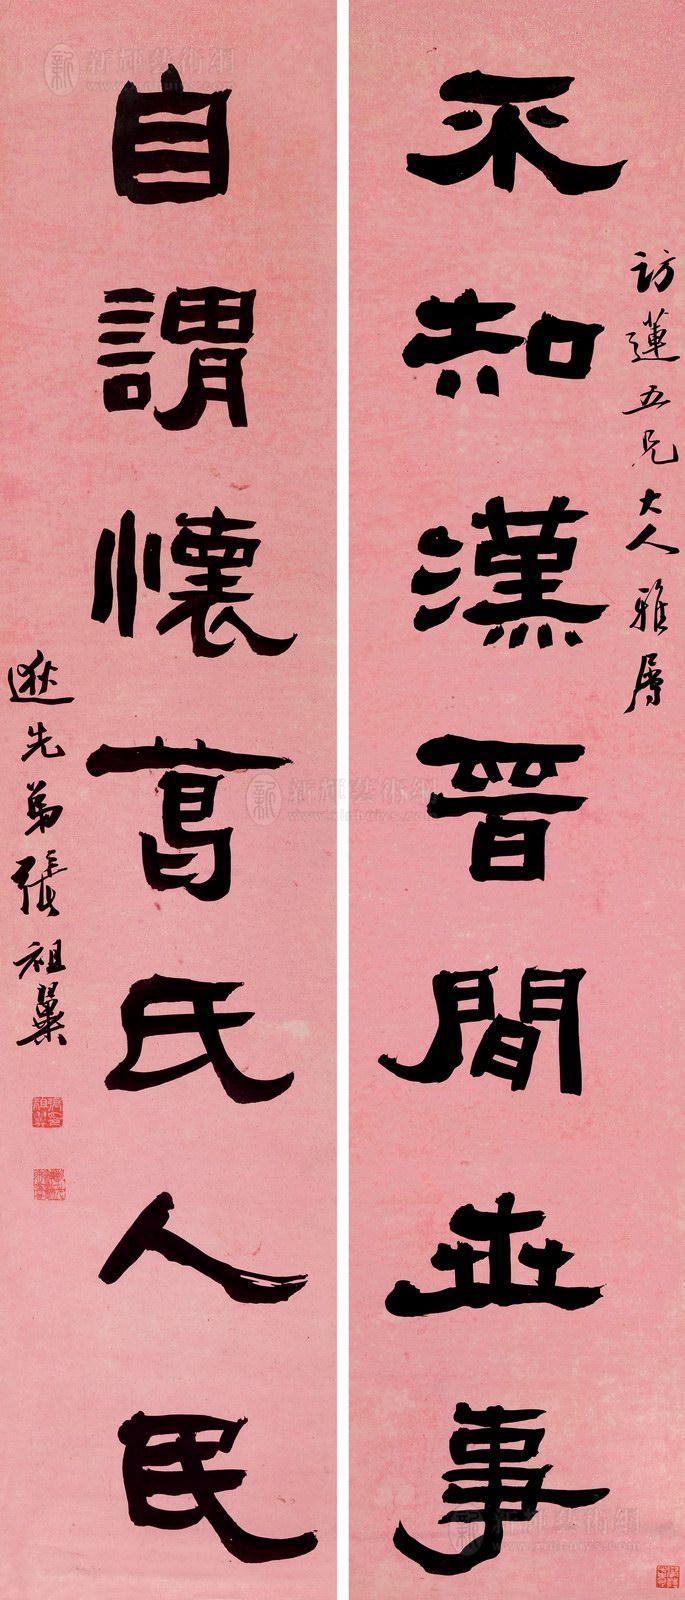 不知漢晉閒世事
訪蓮五兄大人雅屬
自謂懷葛氏人民
逖先弟張祖翼
新輝藝術網